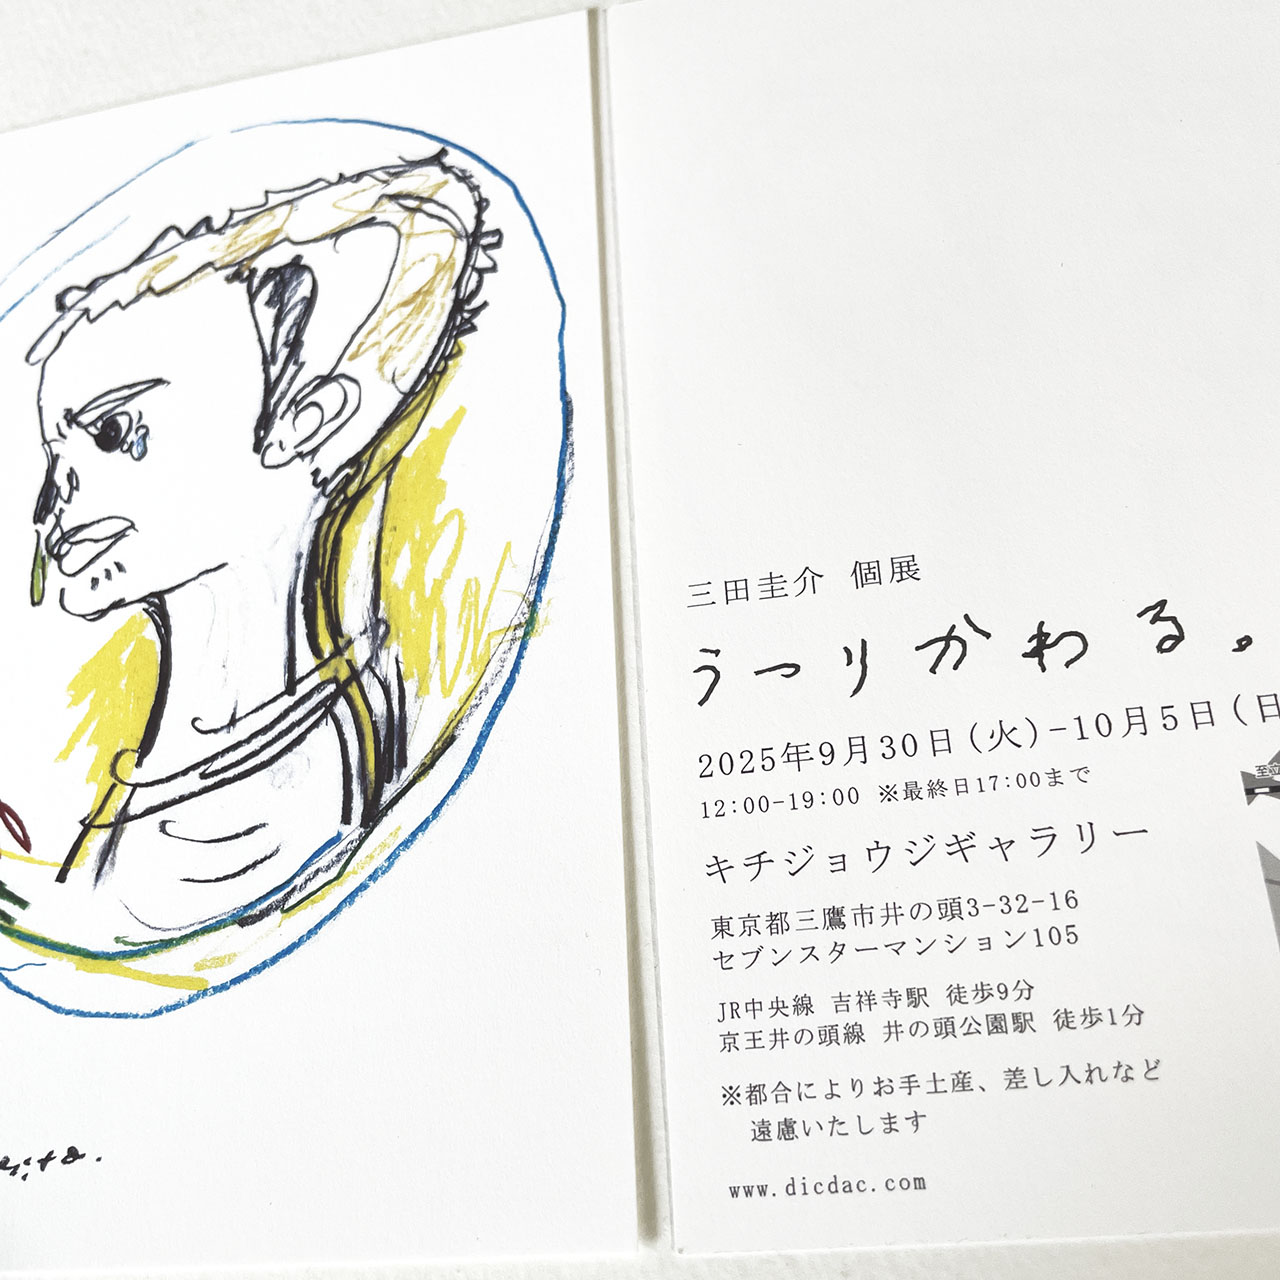 三田圭介 個展
うつりかわる。
2025年9月30日(火)-10月5日(日
12:00-19:00 ※最終日17:00まで
至立
キチジョウジギャラリー
東京都三鷹市井の頭3-32-16
セブンスターマンション105
JR中央線 吉祥寺駅 徒歩9分
京王井の頭線 井の頭公園駅 徒歩1分
※都合によりお手土産、差し入れなど
遠慮いたします
www.dicdac.com